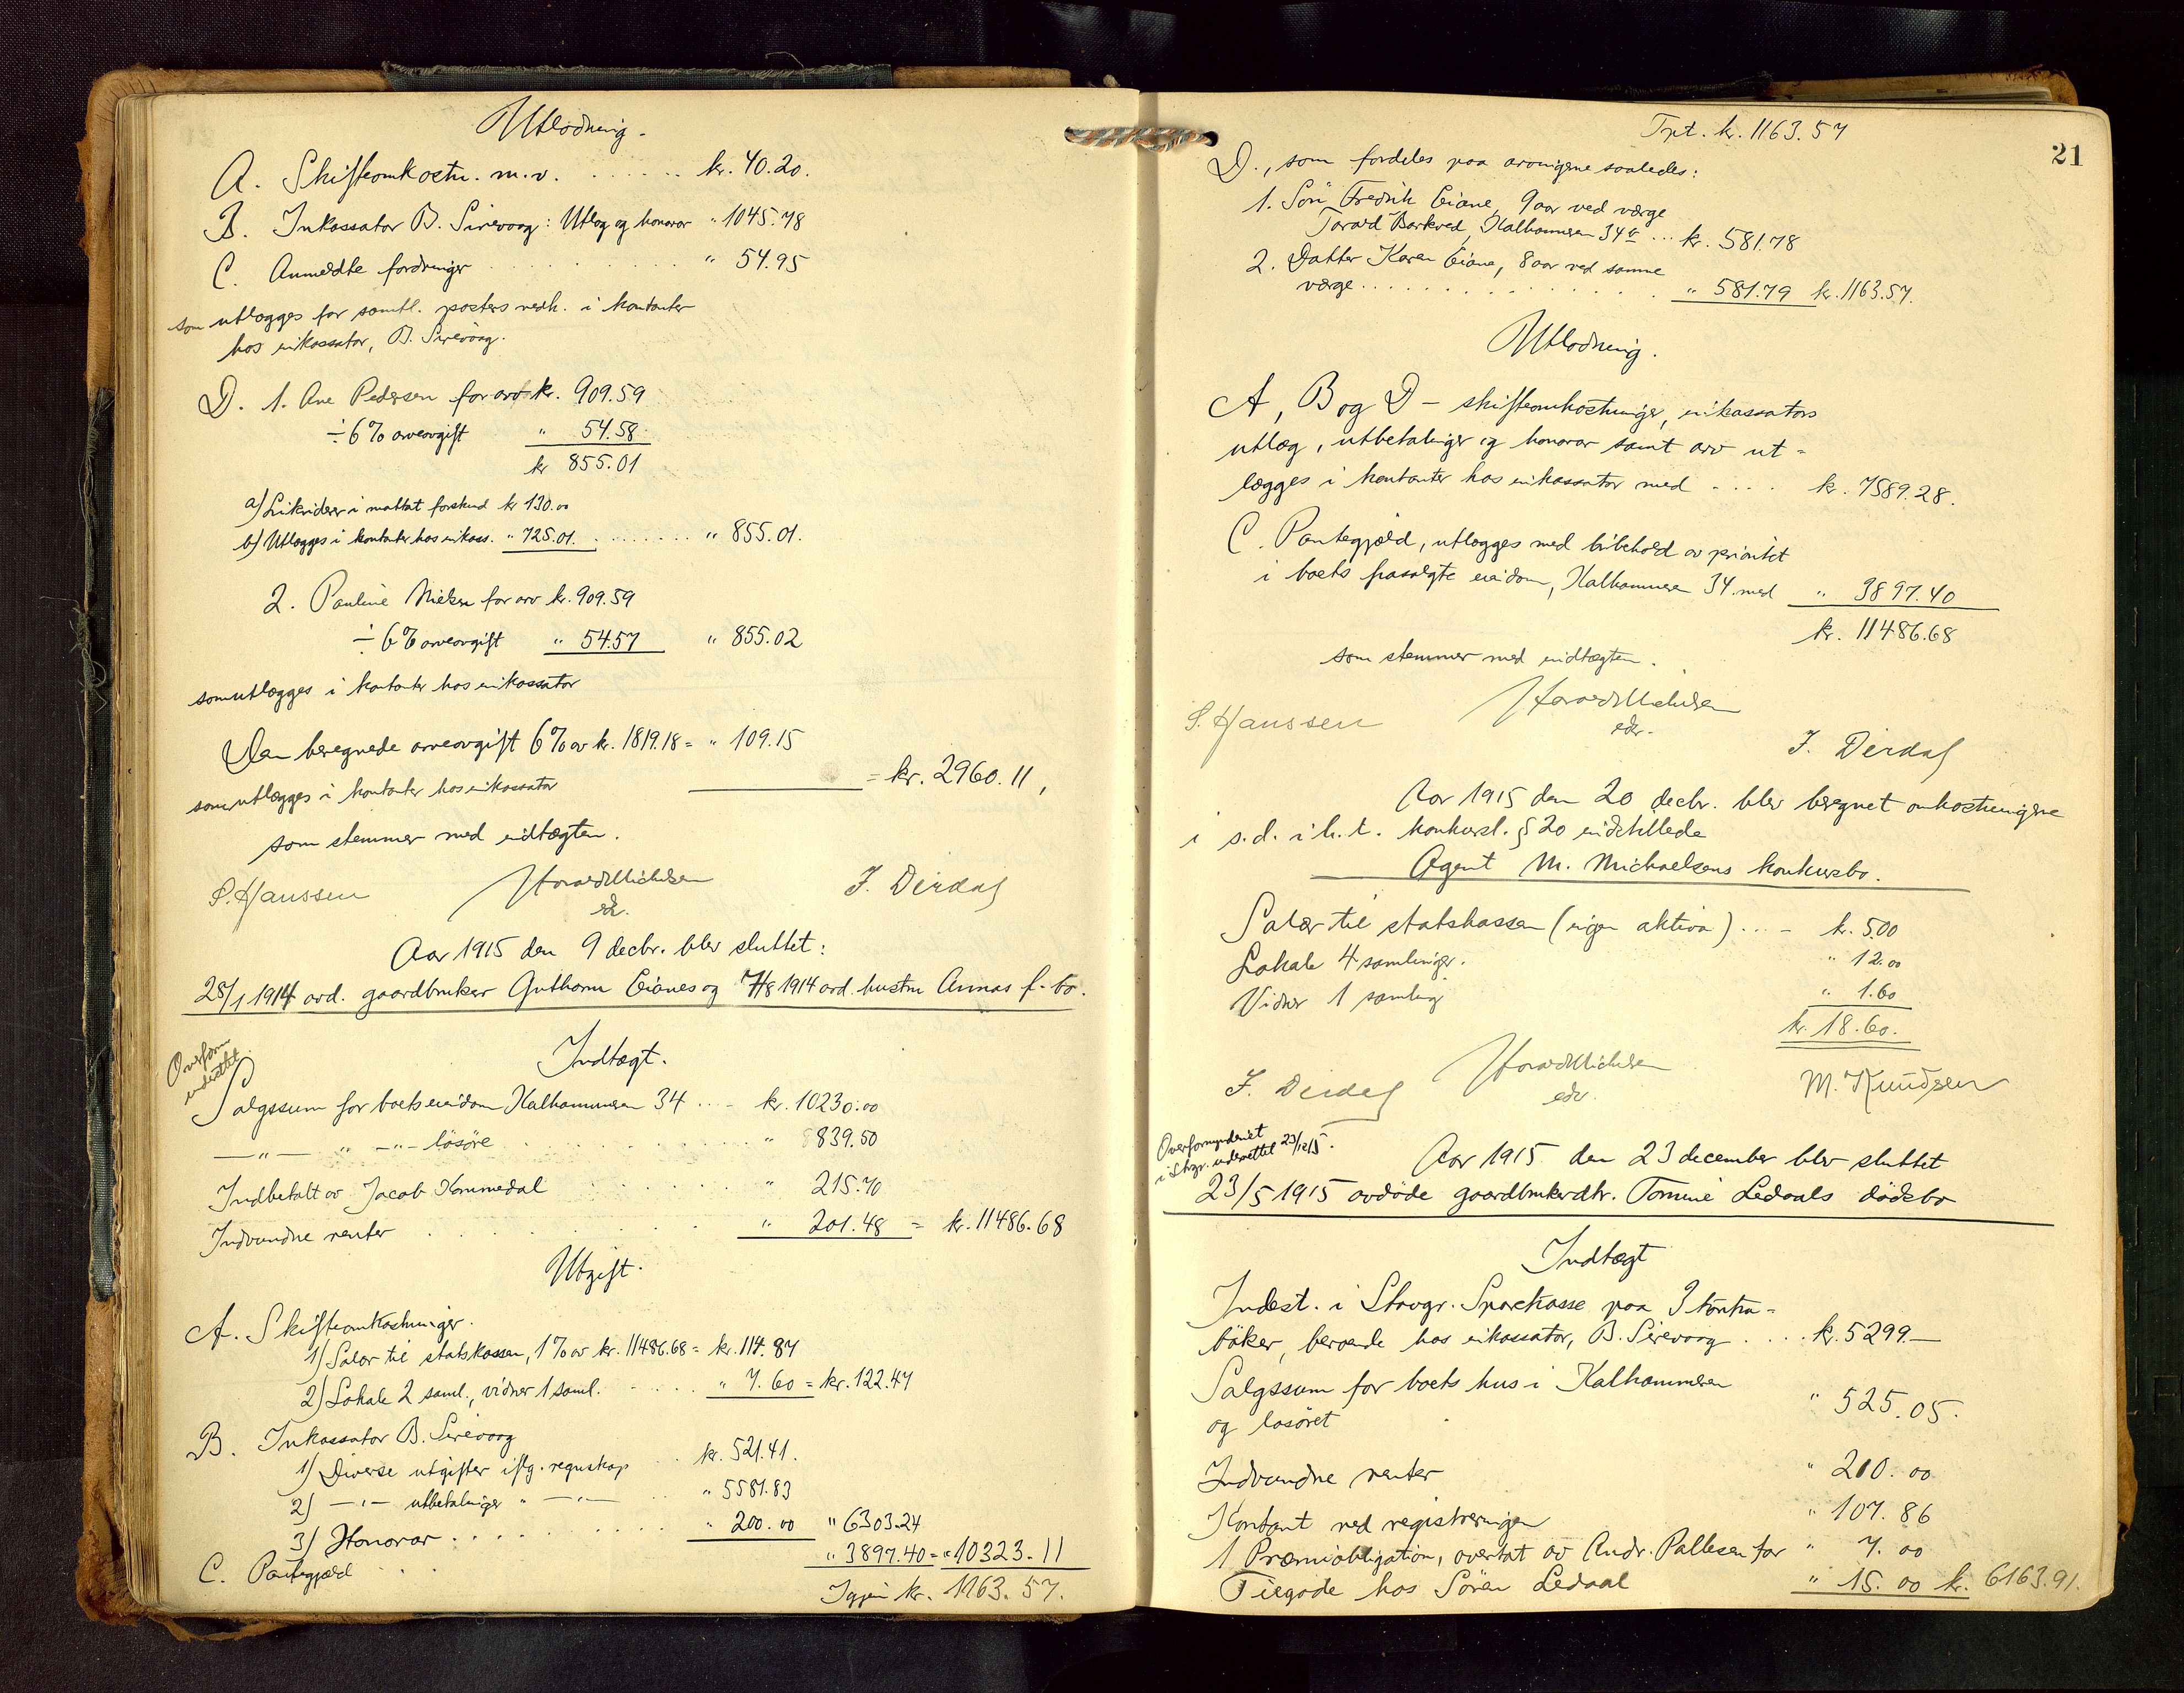 Utlodning.
A. Skifteomkostn. m.v. ...... kr. 40.20.
B. Inkassator B. Sirevaag: Utlæg og honorar " 1045.78
C. Anmeldte fordringer ........ " 54.95
som utlægges for samtl. posters vedk. i kontanter
hos inkassator, B. Sirevaag.
D. 1. Ane Pedersen for arv kr. 909.59
÷ 6% arveavgift " 54.58.
kr 855.01
a) Likviderer i mottat forskud kr 130.00
b) Utlægges i kontanter hos inkass. " 725.01. ........ " 855.01.
2. Pauline Nielsen for arv kr. 909.59
÷ 6% arveavgift " 54.57 " 855.02
som utlægges i kontanter hos inkassator
Den beregnede arveavgift 6% av kr. 1819.18 = " 109.15
som utlægges i kontanter hos inkassator = kr. 2960.11,
som stemmer med indtægten.
S. Hanssen Harald Michelsen J. Dirdal
edv.
Aar 1915 den 9 decbr. blev sluttet:
28/1 1914 avd. gaardbruker Guthorm Eianes og 7/8 1914 avd. hustru Annas f.-bo.
Overform
underrettet.
Indtægt.
Salgssum for boets eiendom Kalhammeren 34 .... kr. 10230.00
—"— " —"— løsøre ........ " 839.50
Indbetalt av Jacob Kommedal ....... " 215.70
Indvundne renter ........ " 201.48 = kr. 11486.68
Utgift.
A. Skifteomkostninger.
1) Salær til statskassen, 1% av kr. 11486.68 = kr. 114.87
2) Lokale 2 saml., vidner 1 saml. ..... " 7.60 = kr. 122.47
B. Inkassator B. Sirevaag
1) Diverse utgifter iflg. regnskap .. kr. 521.41.
2) —"— utbetalinger " —"— .. " 5581.83
3) Honorar ........ " 200.00 " 6303.24
C. Pantegjæld ... " 3897.40 = " 10323.11
Igjen kr. 1163.57.
21
Tpt. kr. 1163.57
D., som fordeles paa arvingene saaledes:
1. Søn Fredrik Eiane, 9 aar ved værge
Tarald Barkved, Kalhammeren 34 a ... kr. 581.78
2. Datter Karen Eiane, 8 aar ved samme
værge ............ " 581.79 kr. 1163.57.
Utlodning.
A, B og D – skifteomkostninger, inkassators
utlæg, utbetalinger og honorar samt arv ut=
lægges i kontanter hos inkassator med .... kr. 7589.28.
C. Pantegjæld, utlægges med bibehold av prioritet
i boets frasolgte eiendom, Kalhammeren 34 med " 3897.40
kr. 11486.68
som stemmer med indtægten.
S. Hanssen Harald Michelsen
edv. J. Dirdal
Aar 1915 den 20 decbr. blev beregnet omkostningene
i s.d. i h.t. konkursl. § 20 indstillede
Agent M. Michaelsens konkursbo.
Salær til statskassen (ingen aktiva) ... – kr. 5.00
Lokale 4 samlinger. " 12.00
Vidner 1 samling " 1.60
kr. 18.60.
J. Dirdal Harald Michelsen M. Knudsen
edv.
Overformynderiet
i Stvgr. underrettet 23/12 15.
Aar 1915 den 23 december blev sluttet
23/5 1915 avdøde gaardbrukerdtr. Tomine Ledaals dødsbo
Indtægt
Indest. i Stavgr. Sparekasse paa 3 kontra=
bøker, beroende hos inkassator, B. Sirevaag .... kr. 5299.—
Salgssum for boets hus i Kalhammeren
og løsøret " 525.05.
Indvundne renter " 210.00
Kontant ved registreringen " 107.86
1 Præmieobligation, overtat av Andr. Pallesen for " 7.00
Tilgode hos Søren Ledaal " 15.00 kr. 6163.91.